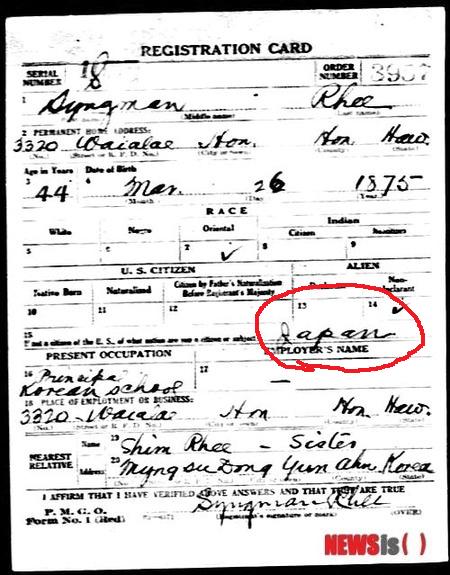 REGISTRATION CARD
SERIAL NUMBER 18 ORDER NUMBER 3957
1 Syngman Rhee
(Middle name)
2 PERMANENT HOME ADDRESS:
3320 Waialae Hon. Hon. Haw.
(No.) (Street or R. F. D. No.) (City or town) (County) (State)
Age in Years Date of Birth
3 44 4 Mar. 26 1875
(Month) (Day) (Year)
RACE
White Negro Oriental Indian
Citizen
5 6 7 ✓ 8 9
U. S. CITIZEN ALIEN
Native Born Naturalized Citizen by Father's Naturalization Before Registrant's Majority Non-declarant
10 11 12 13 14 ✓
15 If not a citizen of the U. S., of what nation are you a citizen or subject? Japan
PRESENT OCCUPATION EMPLOYER'S NAME
16 Principal 17 —
Korean School
18 PLACE OF EMPLOYMENT OR BUSINESS:
3320 Waialae Hon Hon. Haw.
(No.) (Street or R. F. D. No.) (City or town) (County) (State)
NEAREST RELATIVE Name 19 Shim Rhee - Sister
Address 20 Myng su Dong Yun Ahn, Korea
I AFFIRM THAT I HAVE VERIFIED ABOVE ANSWERS AND THAT THEY ARE TRUE
P. M. G. O. Syngman Rhee
Form No. 1 (Red) (Registrant's signature or mark) (OVER)
NEWSis( )